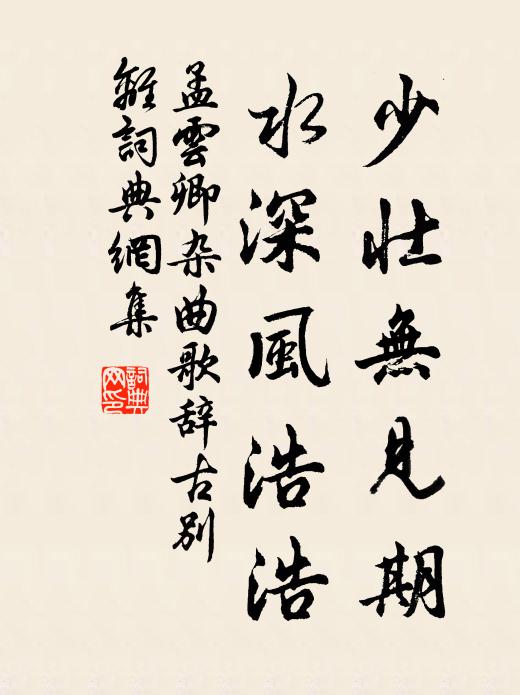 少壮無見期
水深風浩浩
孟雲卿杂曲歌辞古别
離詞典網集
詞典网印